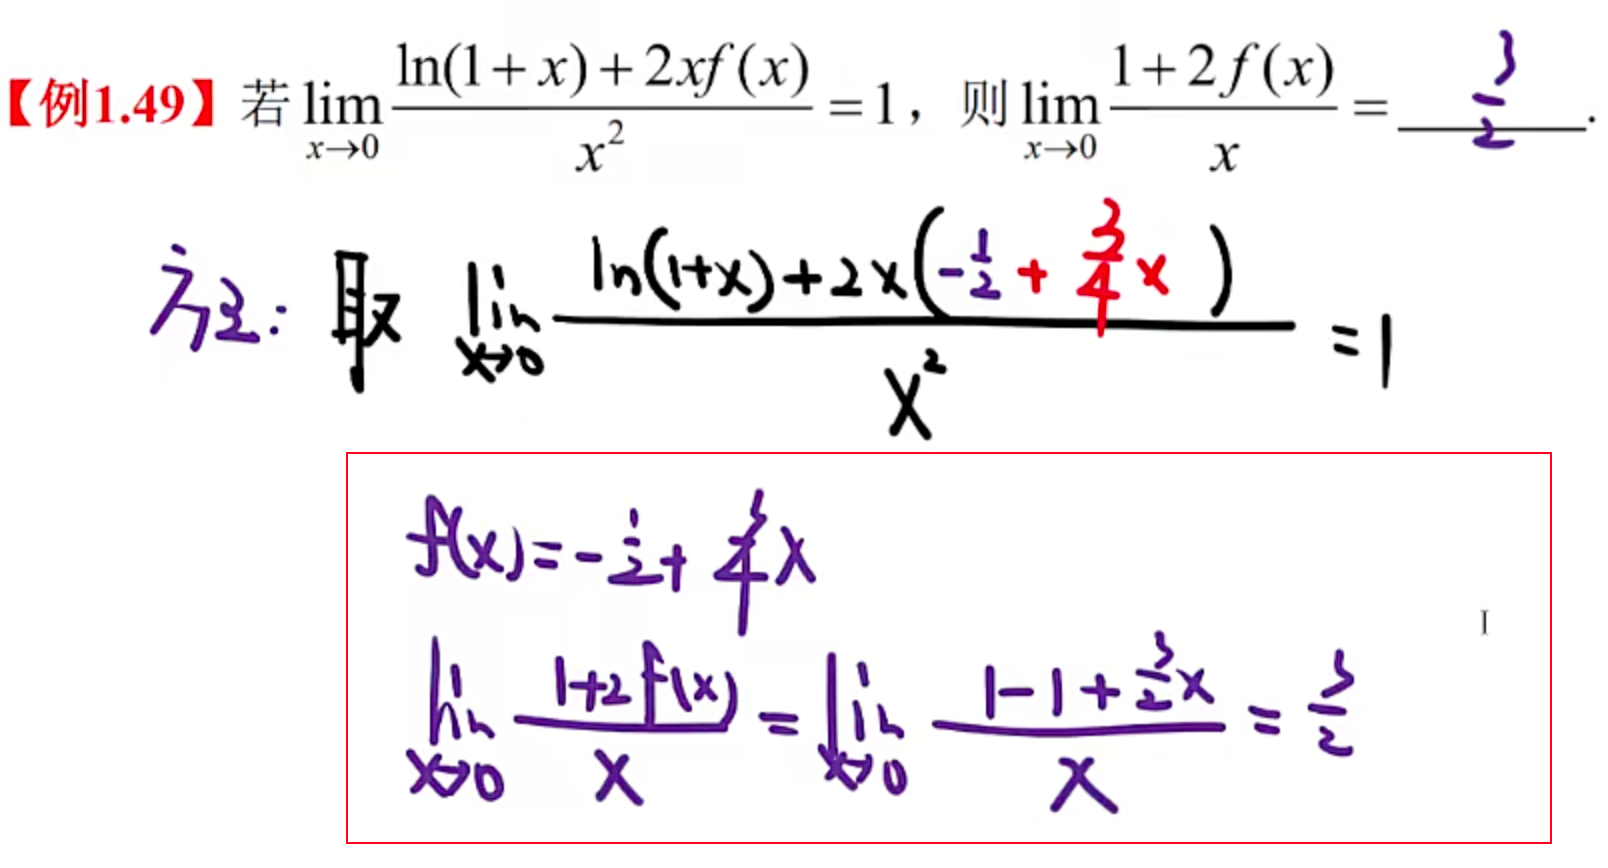 【例1.49】若 lim x→0 ln(1+x)+2xf(x) / x² =1，则 lim x→0 1+2f(x) / x = 3/2 .
方法: 取 lim x→0 ln(1+x)+2x(-1/2 + 3/4 x) / x² =1
f(x)=-1/2+3/4x
lim x→0 1+2f(x) / x = lim x→0 1-1+3/2x / x = 3/2